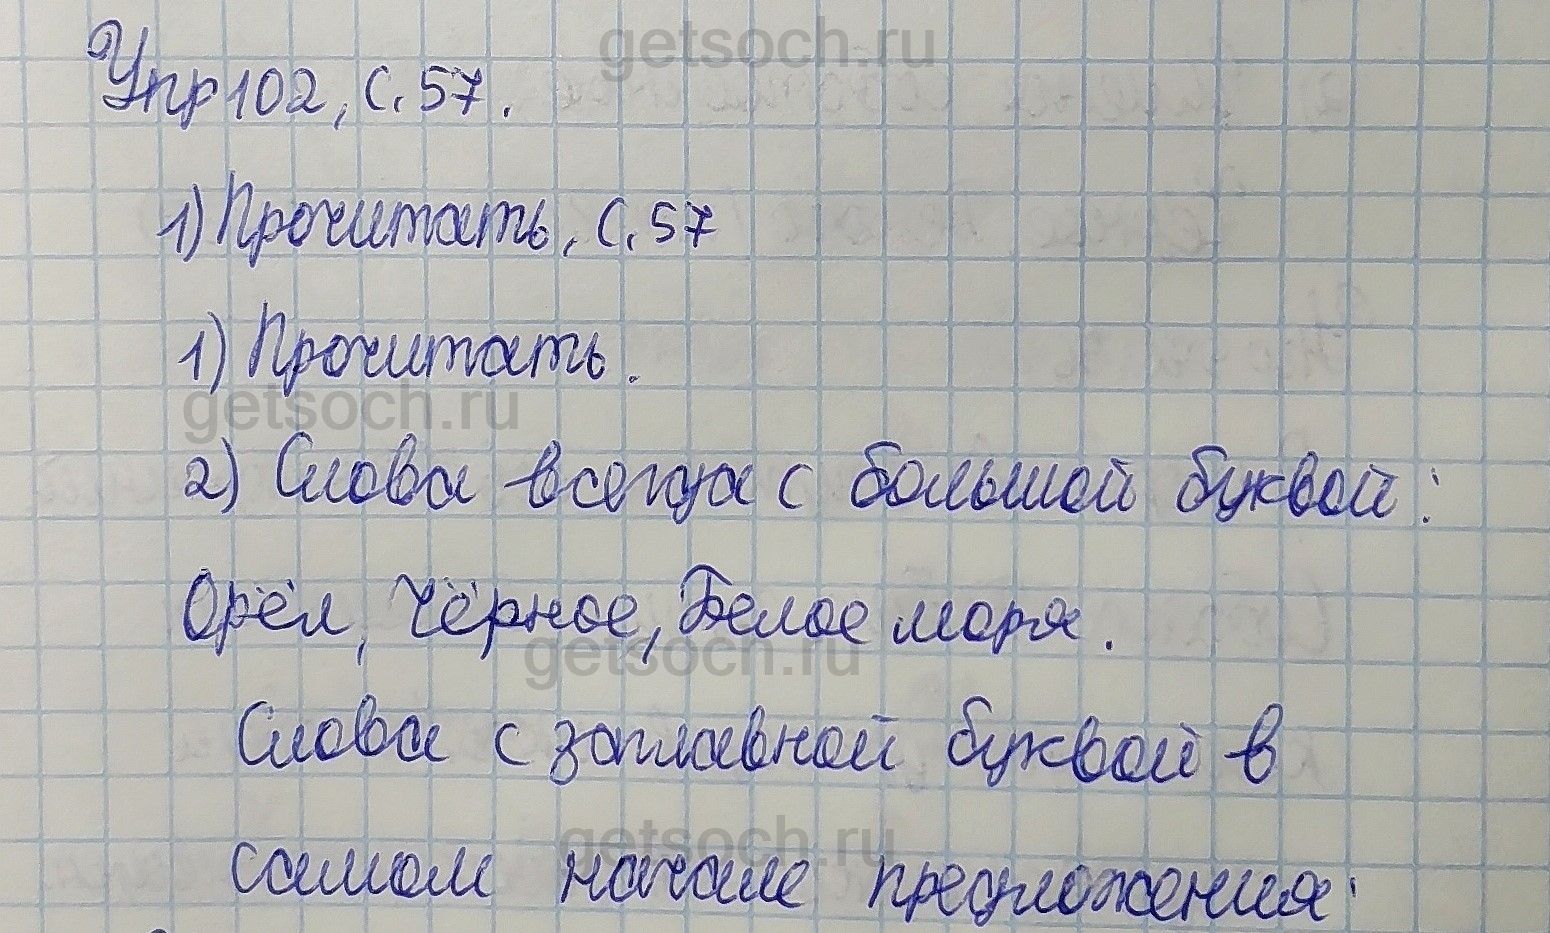 getsoch.ru
Упр 102, с. 57.
1) Прочитать, с. 57
1) Прочитать.
getsoch.ru
2) Слова всегда с большой буквой:
Орёл, Чёрное, Белое моря.
getsoch.ru
Слова с заглавной буквой в
getsoch.ru
самом начале предложения: